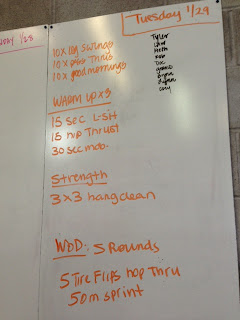 1/28
Tuesday 1/29
10x leg swings
10x pass thrus
10x good mornings
Tyler
WARM UP x3
15 sec L-sit
15 hip Thrust
30 sec mob.
Strength
3x3 hang clean
WOD: 5 Rounds
5 Tire Flips hop Thru
50m sprint